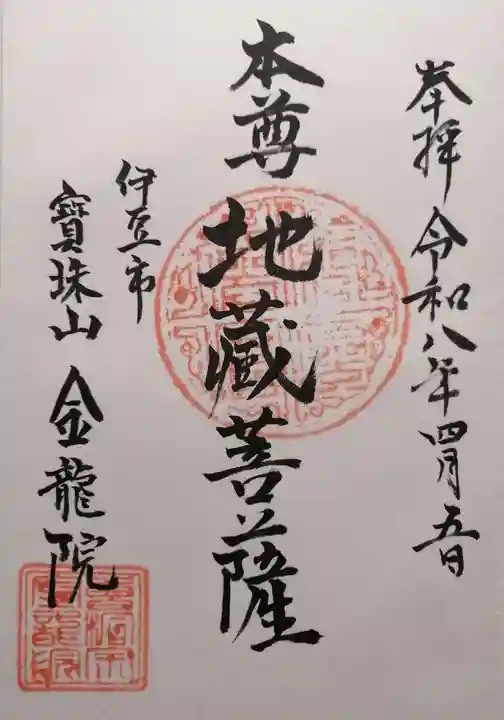 奉拝 令和八年四月五日
本尊 地蔵菩薩
伊豆市
寶珠山 金龍院